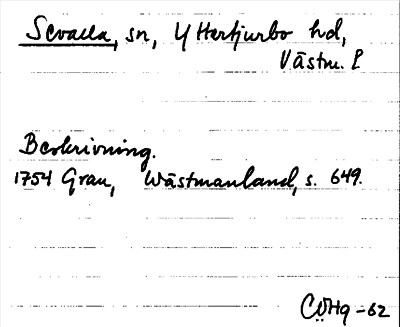 Sevalla, sn, Yttertjurbo hd,
Västm. l.
Beskrivning.
1754 Grau, Wästmanland, s. 649.
CÖHg -62